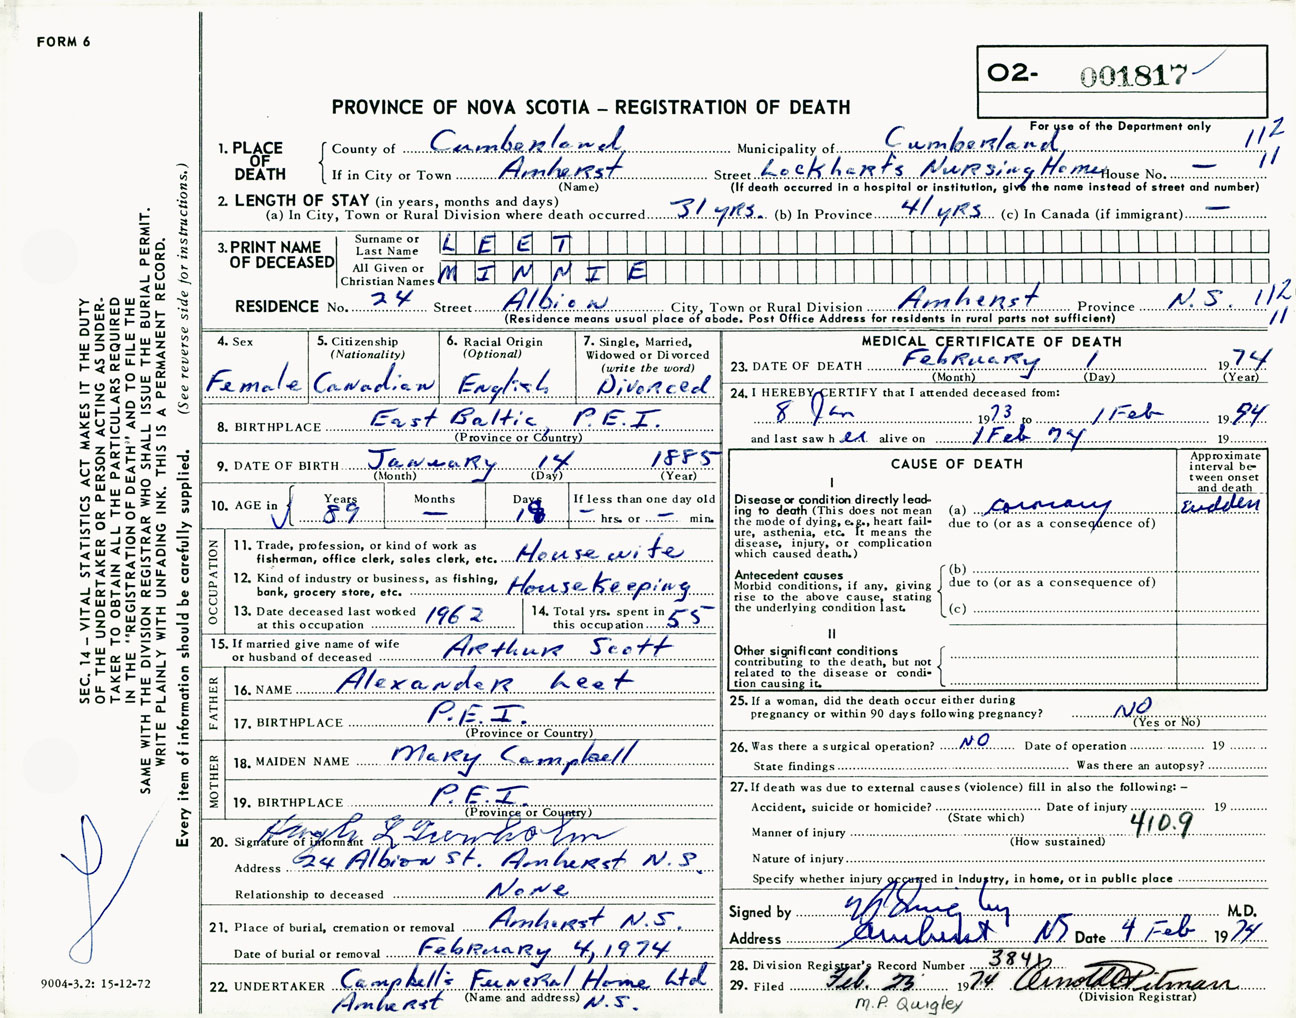 FORM 6
O2- 001817
PROVINCE OF NOVA SCOTIA – REGISTRATION OF DEATH
For use of the Department only
1. PLACE OF DEATH
County of Cumberland Municipality of Cumberland 112
If in City or Town Amherst Street Lockhart's Nursing Home House No. — 11
(Name) (If death occurred in a hospital or institution, give the name instead of street and number)
2. LENGTH OF STAY (in years, months and days)
(a) In City, Town or Rural Division where death occurred 31 yrs. (b) In Province 41 yrs (c) In Canada (if immigrant) —
3. PRINT NAME OF DECEASED
Surname or Last Name LEET
All Given or Christian Names MINNIE
RESIDENCE No. 24 Street Albion City, Town or Rural Division Amherst Province N.S. 112
(Residence means usual place of abode. Post Office Address for residents in rural parts not sufficient) 11
4. Sex
Female
5. Citizenship
(Nationality)
Canadian
6. Racial Origin
(Optional)
English
7. Single, Married,
Widowed or Divorced
(write the word)
Divorced
8. BIRTHPLACE East Baltic, P.E.I.
(Province or Country)
9. DATE OF BIRTH January 14 1885
(Month) (Day) (Year)
10. AGE in Years 89 Months — Days 18 If less than one day old
— hrs. or — min.
OCCUPATION
11. Trade, profession, or kind of work as
fisherman, office clerk, sales clerk, etc. Housewife
12. Kind of industry or business, as fishing,
bank, grocery store, etc. Housekeeping
13. Date deceased last worked
at this occupation 1962
14. Total yrs. spent in
this occupation 55
15. If married give name of wife
or husband of deceased Arthur Scott
FATHER
16. NAME Alexander Leet
17. BIRTHPLACE P.E.I.
(Province or Country)
MOTHER
18. MAIDEN NAME Mary Campbell
19. BIRTHPLACE P.E.I.
(Province or Country)
20. Signature of informant Hugh L Trenholm
Address 24 Albion St. Amherst N.S.
Relationship to deceased None
21. Place of burial, cremation or removal Amherst N.S.
Date of burial or removal February 4, 1974
22. UNDERTAKER Campbell's Funeral Home Ltd
(Name and address)
Amherst N.S.
MEDICAL CERTIFICATE OF DEATH
23. DATE OF DEATH February 1 1974
(Month) (Day) (Year)
24. I HEREBY CERTIFY that I attended deceased from:
8 Jan 1973 to 1 Feb 1974
and last saw her alive on 1 Feb 74 19
CAUSE OF DEATH
Approximate
interval be-
tween onset
and death
I
Disease or condition directly lead-
ing to death (This does not mean
the mode of dying, e.g., heart fail-
ure, asthenia, etc. It means the
disease, injury, or complication
which caused death.)
(a) coronary sudden
due to (or as a consequence of)
Antecedent causes
Morbid conditions, if any, giving
rise to the above cause, stating
the underlying condition last.
(b)
due to (or as a consequence of)
(c)
II
Other significant conditions
contributing to the death, but not
related to the disease or condi-
tion causing it.
25. If a woman, did the death occur either during
pregnancy or within 90 days following pregnancy? NO
(Yes or No)
26. Was there a surgical operation? NO Date of operation 19
State findings Was there an autopsy?
27. If death was due to external causes (violence) fill in also the following: –
Accident, suicide or homicide? Date of injury 19
(State which)
410.9
Manner of injury
(How sustained)
Nature of injury
Specify whether injury occurred in Industry, in home, or in public place
Signed by M P Quigley M.D.
Address Amherst NS Date 4 Feb 1974
28. Division Registrar's Record Number 3841
29. Filed Feb. 23 1974 Arnold Pitman
(Division Registrar)
M.P. Quigley
SEC. 14 – VITAL STATISTICS ACT MAKES IT THE DUTY
OF THE UNDERTAKER OR PERSON ACTING AS UNDER-
TAKER TO OBTAIN ALL THE PARTICULARS REQUIRED
IN THE "REGISTRATION OF DEATH" AND TO FILE THE
SAME WITH THE DIVISION REGISTRAR WHO SHALL ISSUE THE BURIAL PERMIT.
WRITE PLAINLY WITH UNFADING INK. THIS IS A PERMANENT RECORD.
Every item of information should be carefully supplied. (See reverse side for instructions.)
9004-3.2: 15-12-72